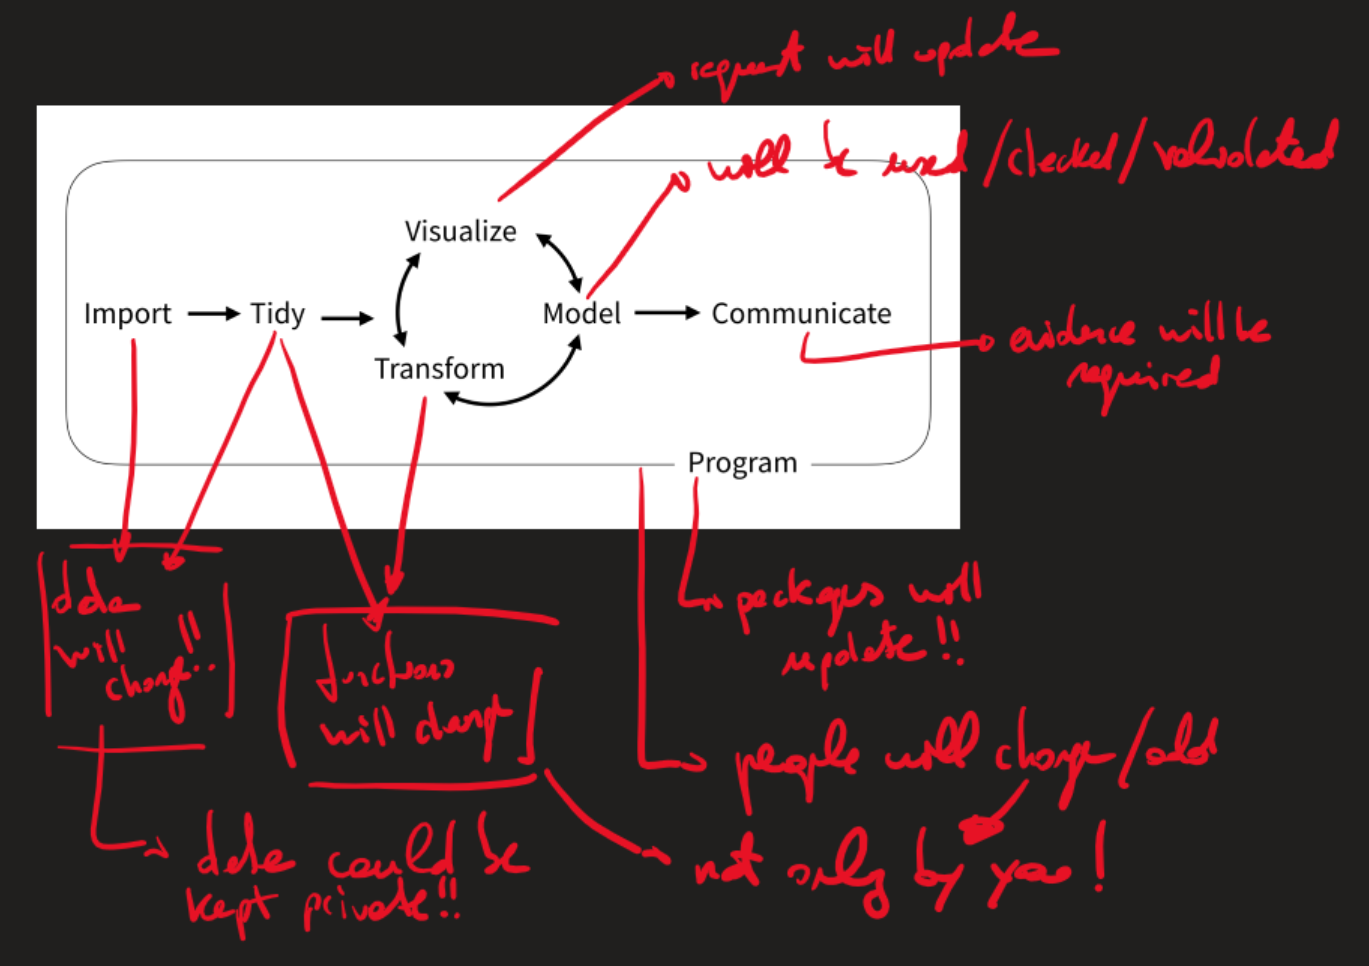 request will update
will be used/checked/validated
Visualize
Import
Tidy
Model
Communicate
evidence will be
required
Transform
Program
data
will
change!!
functions
will change
packages will
update!!
people will change/add
data could be
kept private!!
not only by you!